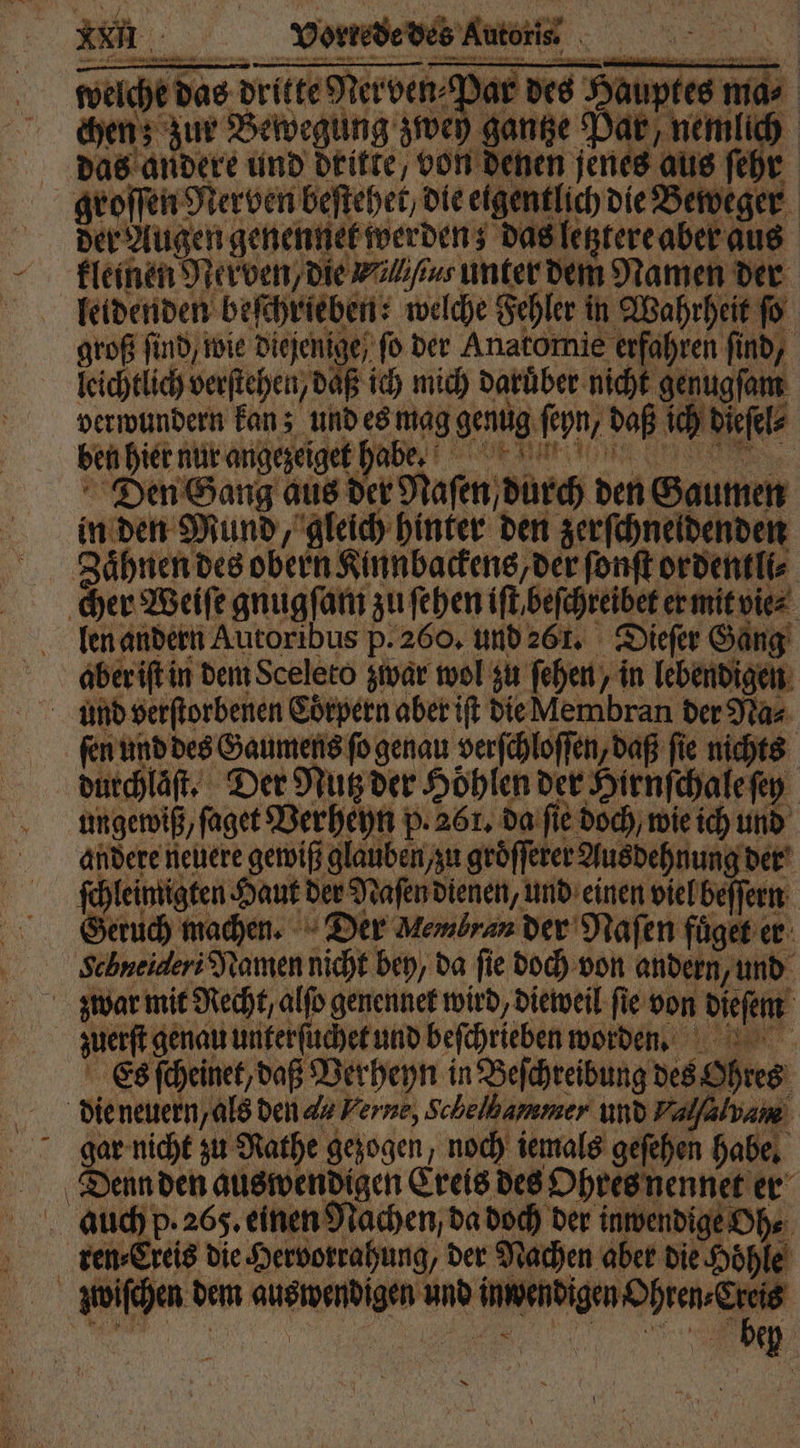 XXII Vorrede des Autoris.
welche das dritte Nerven-Par des Hauptes ma-
chen; zur Bewegung zwey gantze Par, nemlich
das andere und dritte, von denen jenes aus sehr
grossen Nerven bestehet, die eigentlich die Beweger
der Augen genennet werden; das letztere aber aus
kleinen Nerven, die Willisius unter dem Namen der
leidenden beschrieben: welche Fehler in Wahrheit so
groß sind, wie diejenige, so der Anatomie erfahren sind,
leichtlich verstehen, daß ich mich darüber nicht genugsam
verwundern kan; und es mag genug seyn, daß ich diesel-
ben hier nur angezeiget habe.
Den Gang aus der Nasen, durch den Gaumen
in den Mund, gleich hinter den zerschneidenden
Zähnen des obern Kinnbackens, der sonst ordentli-
cher Weise gnugsam zu sehen ist, beschreibet er mit vie-
len andern Autoribus p. 260. und 261. Dieser Gang
aber ist in dem Sceleto zwar wol zu sehen, in lebendigen
und verstorbenen Cörpern aber ist die Membran der Na-
sen und des Gaumens so genau verschlossen, daß sie nichts
durchläst. Der Nutz der Höhlen der Hirnschale sey
ungewiß, saget Verheyn p. 261. da sie doch, wie ich und
andere neuere gewiß glauben, zu grösserer Ausdehnung der
schleimigten Haut der Nasen dienen, und einen viel bessern
Geruch machen. Der Membran der Nasen füget er
Schneideri Namen nicht bey, da sie doch von andern, und
zwar mit Recht, also genennet wird, dieweil sie von diesem
zuerst genau untersuchet und beschrieben worden.
Es scheinet, daß Verheyn in Beschreibung des Ohres
die neuern, als den du Verne, Schelhammer und Valsalvam
gar nicht zu Rathe gezogen, noch iemals gesehen habe.
Denn den auswendigen Creis des Ohres nennet er
auch p. 265. einen Nachen, da doch der inwendige Oh-
ren-Creis die Hervorrahung, der Nachen aber die Höhle
zwischen dem auswendigen und inwendigen Ohren-Creis
bey